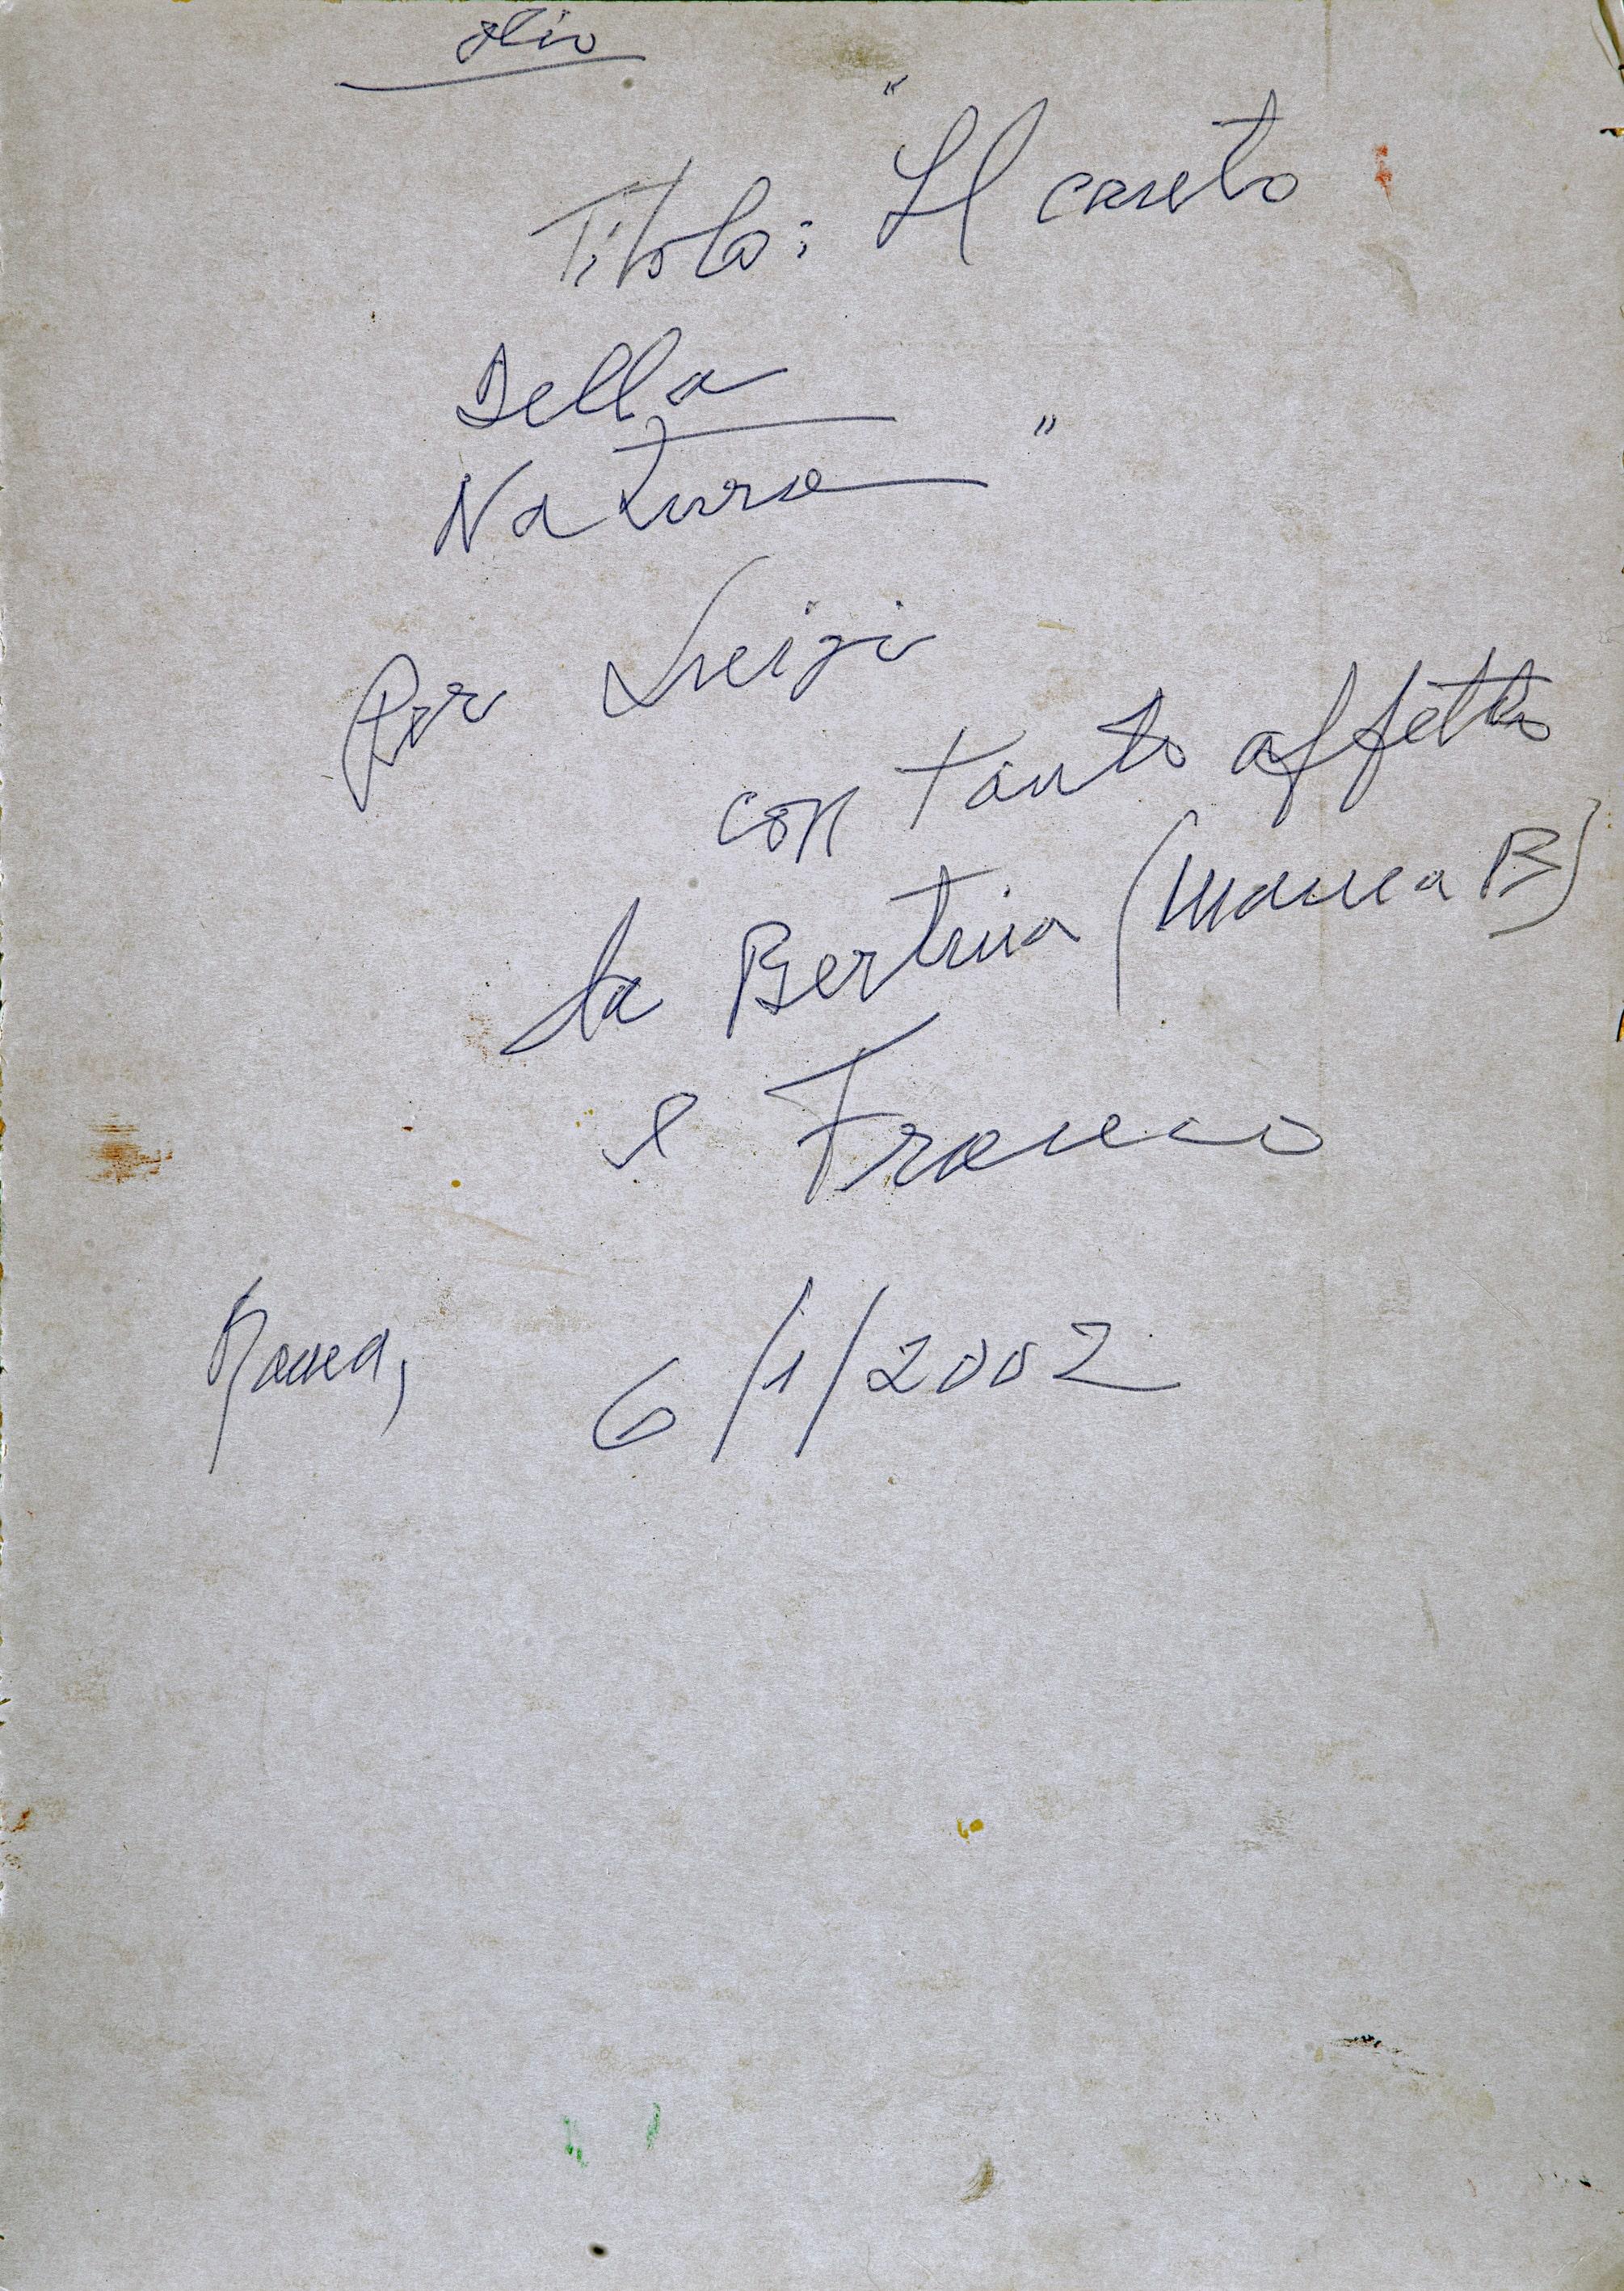 olio
Titolo: "Il canto
Della
Natura"
Per Luigi
con tanto affetto
la Bertina (mamma B)
e Franco
Roma, 6/1/2002